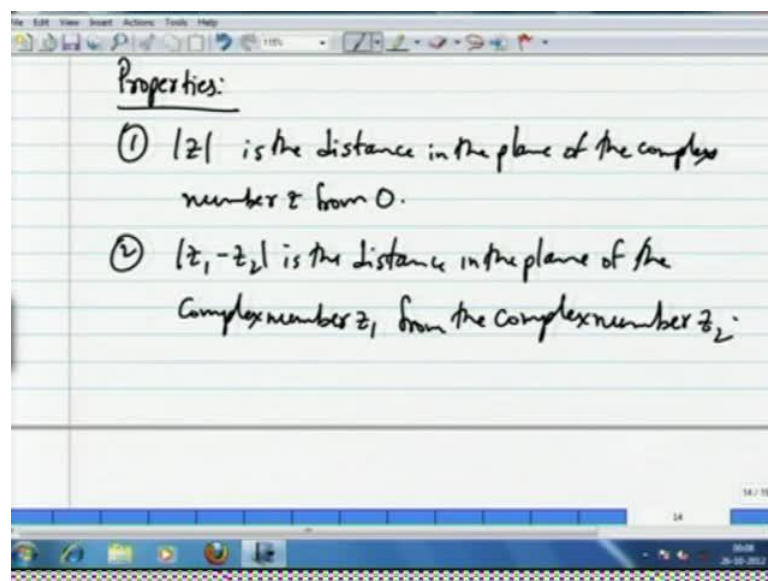 File Edit View Insert Actions Tools Help
Properties:
① |z| is the distance in the plane of the complex
number z from 0.
② |z₁-z₂| is the distance in the plane of the
Complex number z₁ from the complex number z₂.
14 / 15
14
00:08
26-10-2012